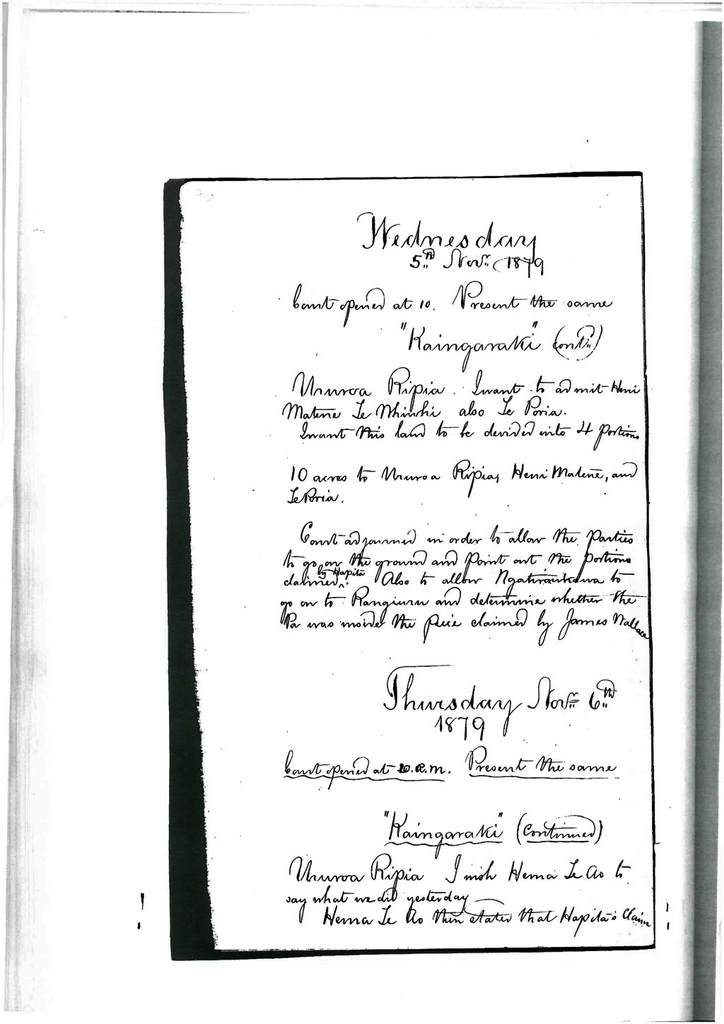 Wednesday
5th Novr 1879
Court opened at 10. Present the same
"Kaingaraki" (contd)
Unuroa Ripia. I want to admit Heni
Matene Te Whiwhi also Te Poria.
I want this land to be devided into 4 portions
10 acres to Unuroa Ripia, Heni Matene, and
Te Poria.
Court adjourned in order to allow the parties
to go on the ground and point out the portions
claimed by Hapita. Also to allow Ngatiraukawa to
go on to Rangiuru and determine whether the
Pa was inside the peice claimed by James Wallace
Thursday Novr 6th
1879
Court opened at 10 A.m. Present the same
"Kaingaraki" (Continued)
Unuroa Ripia I wish Hema Te Ao to
say what we did yesterday
Hema Te Ao then stated that Hapita's Claim